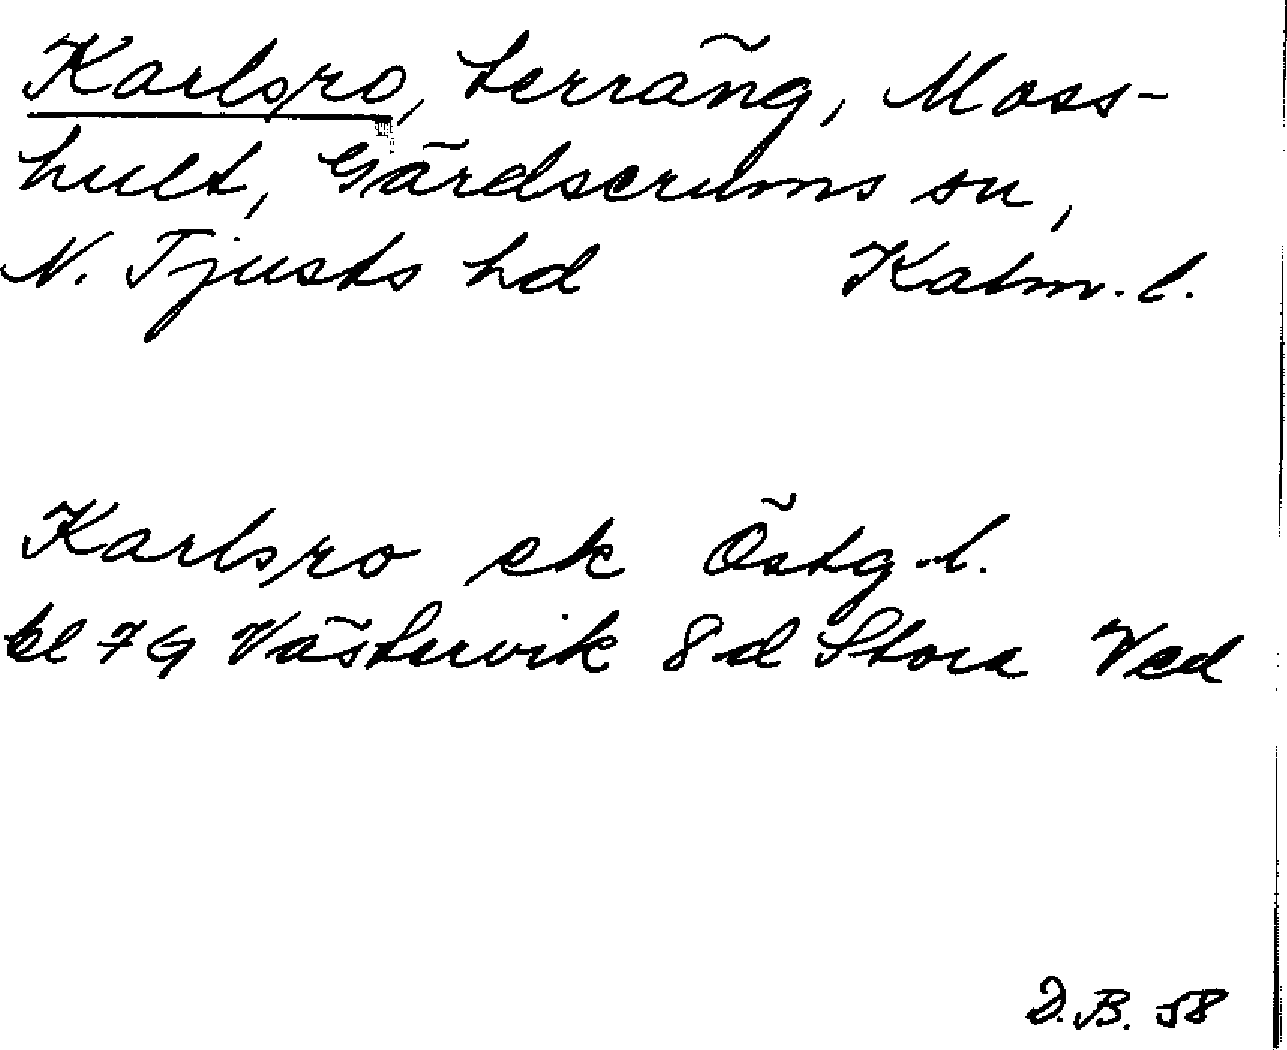 Karlsro, terräng, Moss-
hult, Gärdserums sn,
N. Tjusts hd Kalm. l.
Karlsro ek Östg. l.
bl 7 G Västervik 8 d Stora Ved
D.B. 58